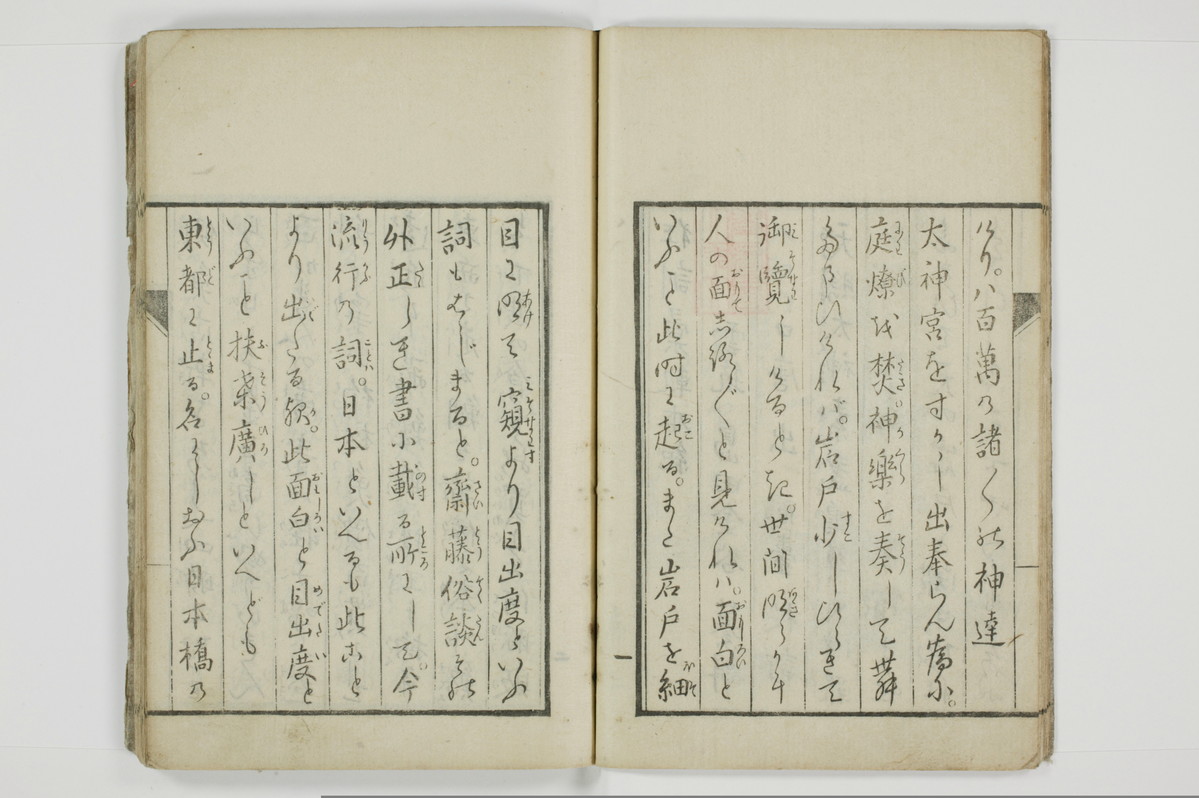 けり。八百萬の諸〳〵の神達
太神宮をすかし出奉らん為に。
庭燎を焚。神樂を奏して舞
ひければ。岩戸少しひらきて
御覽しけるとき。世間明らかに
人の面しろ〴〵と見ければ。面白と
いふこと此時に起る。また岩戸を細
目に明て窺より目出度といふ
詞もはじまると。齋藤俗談その
外正しき書に載る所にして。今
流行の詞。日本といへるも此こと
より出たる歟。此面白と目出度と
いふこと扶桒廣しといへども
東都に止る。名にしおふ日本橋の